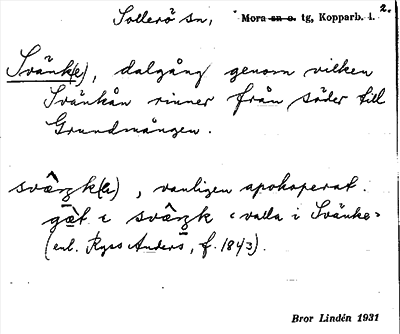 Sollerö sn, Mora sn o. tg, Kopparb. l. 2.
Svänk(e), dalgång genom vilken
Svänkån rinner från söder till
Grundmången.
svæ̂ŋk(ə), vanligen apokoperat.
gæt i svæ̂ŋk "valla i Svänke"
(enl. Ryss Anders, f. 1843).
Bror Lindén 1931